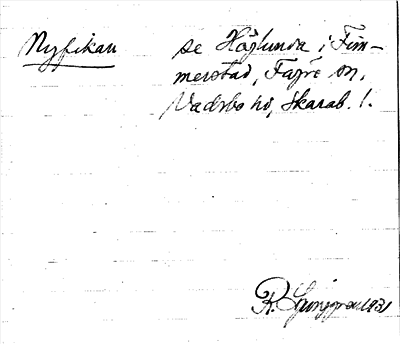 Nyfikan se Höglunda i Fim-
merstad, Fägre sn,
Vadsbo hd, Skarab. l.
R. Ljunggren 1931